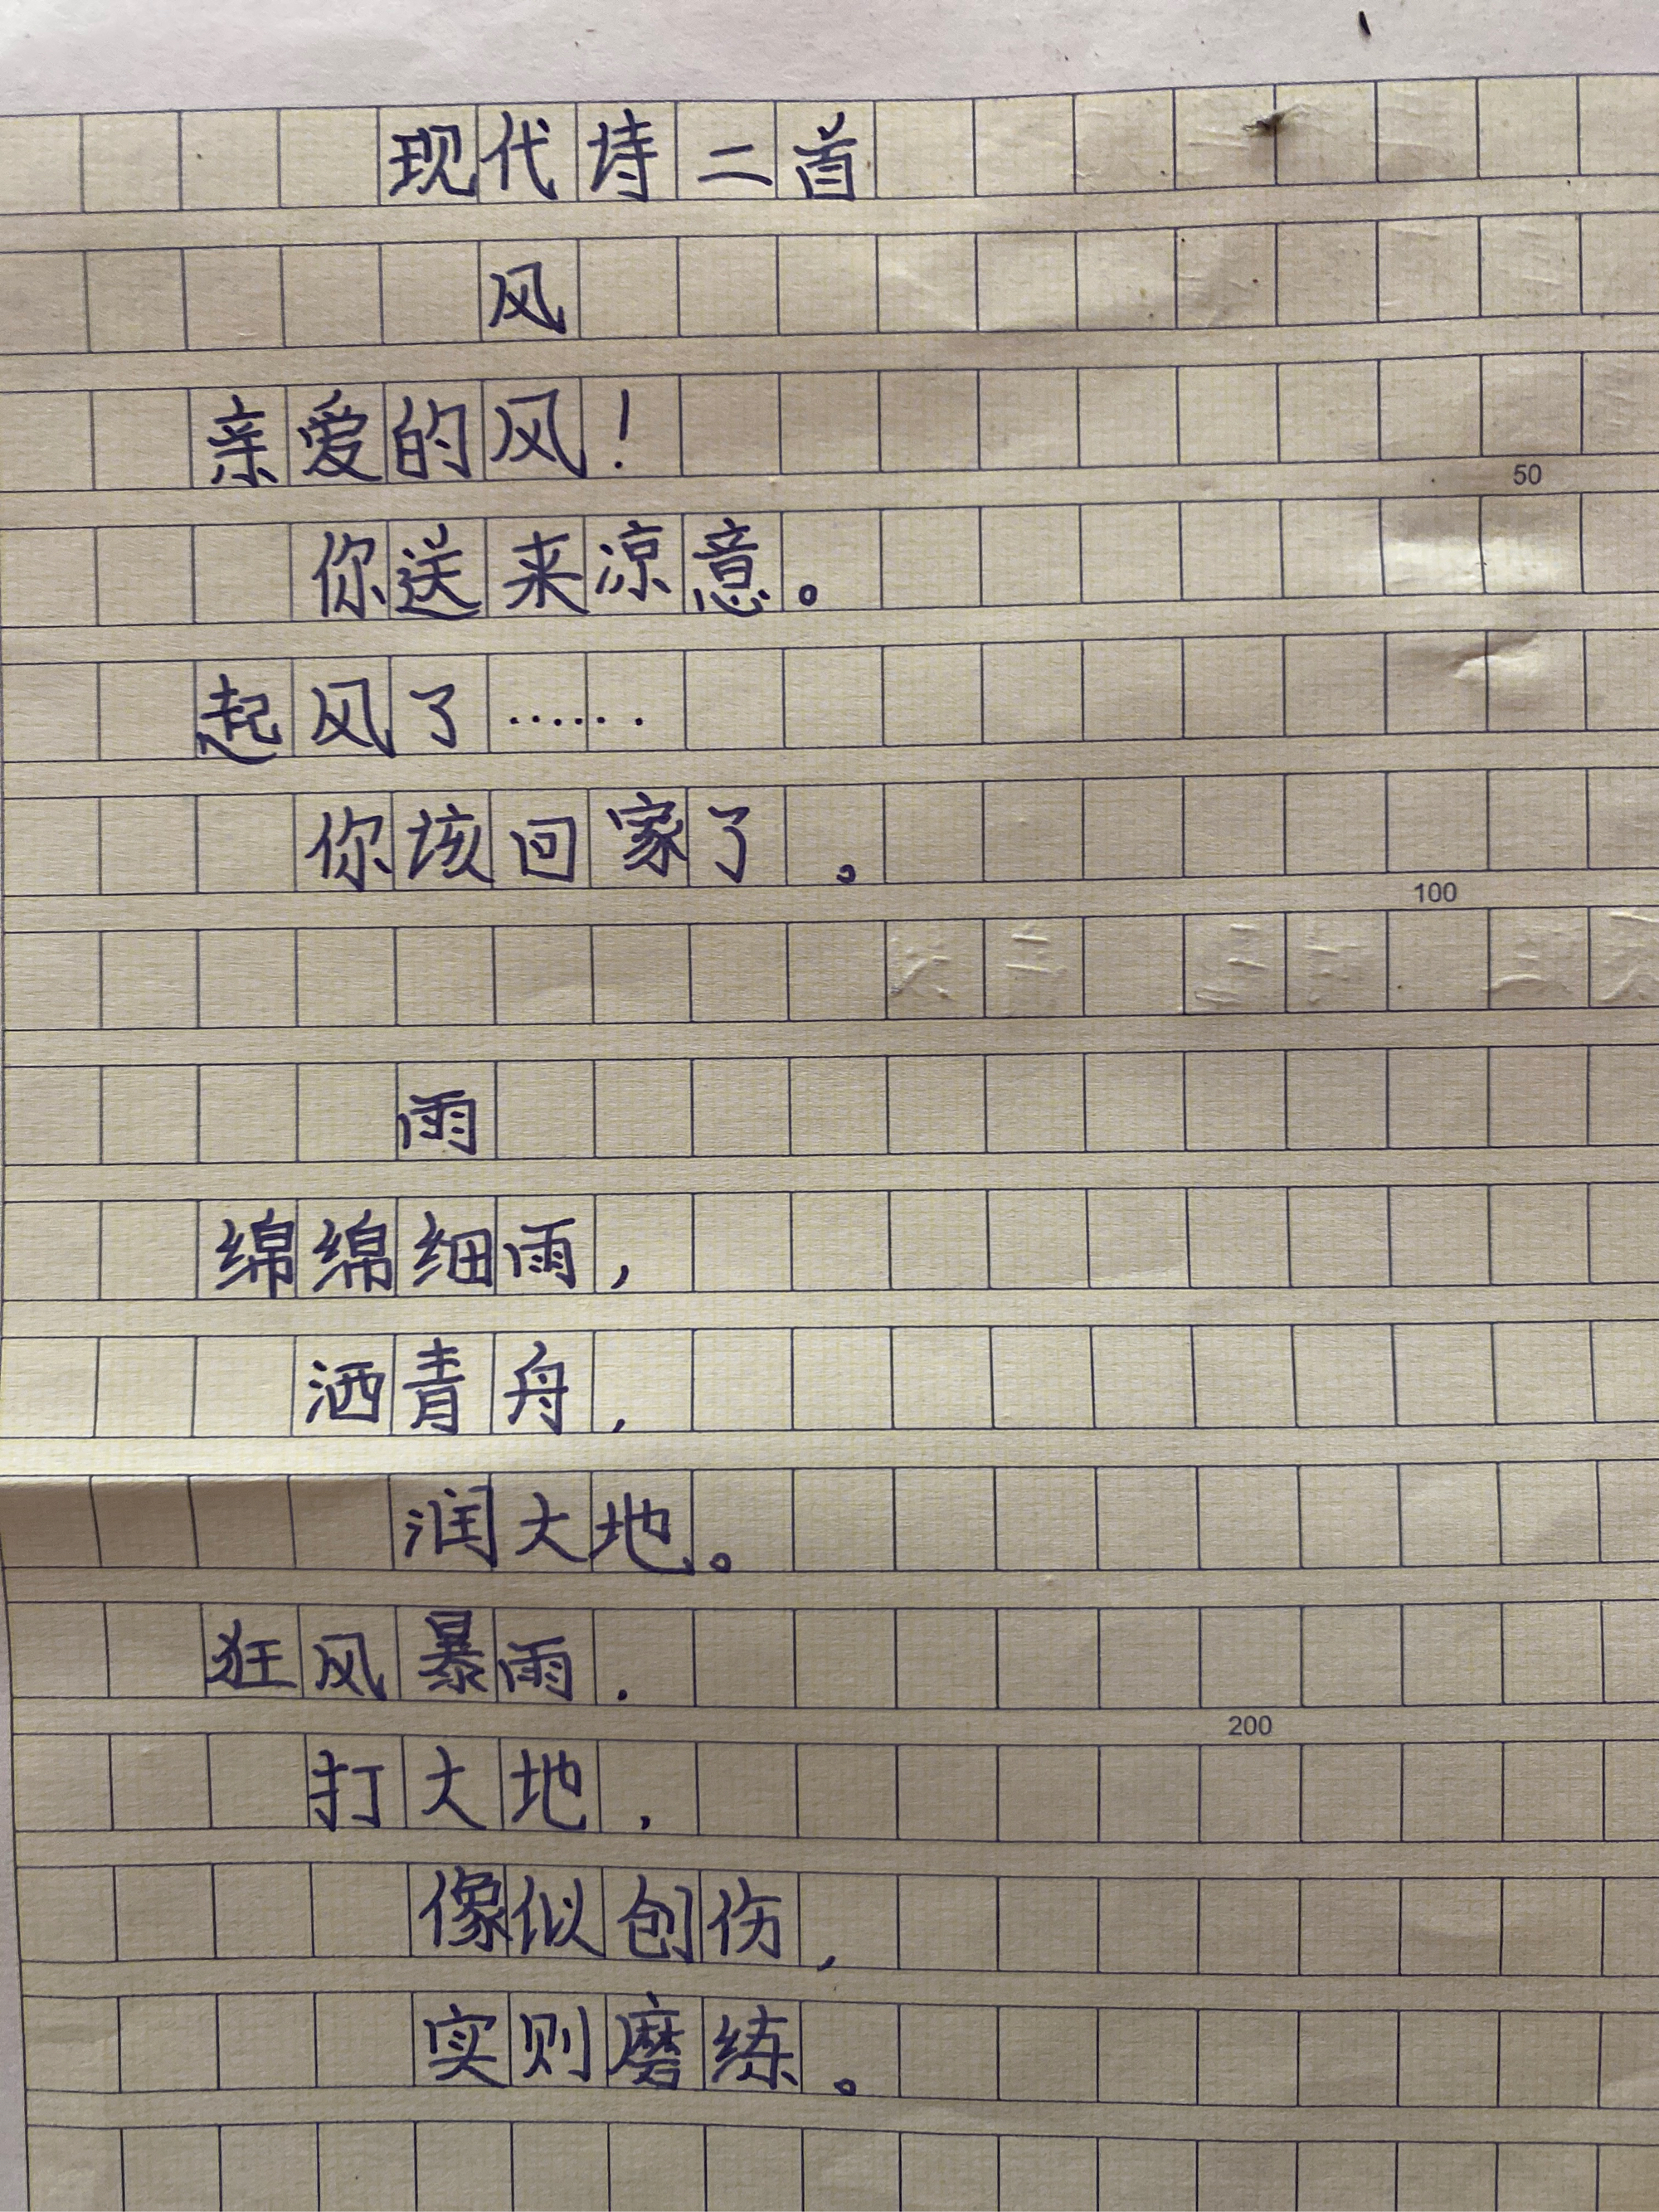 现代诗二首
风
亲爱的风！
50
你送来凉意。
起风了……
你该回家了。
100
雨
绵绵细雨，
洒青舟，
润大地。
狂风暴雨，
200
打大地，
像似创伤，
实则磨练。